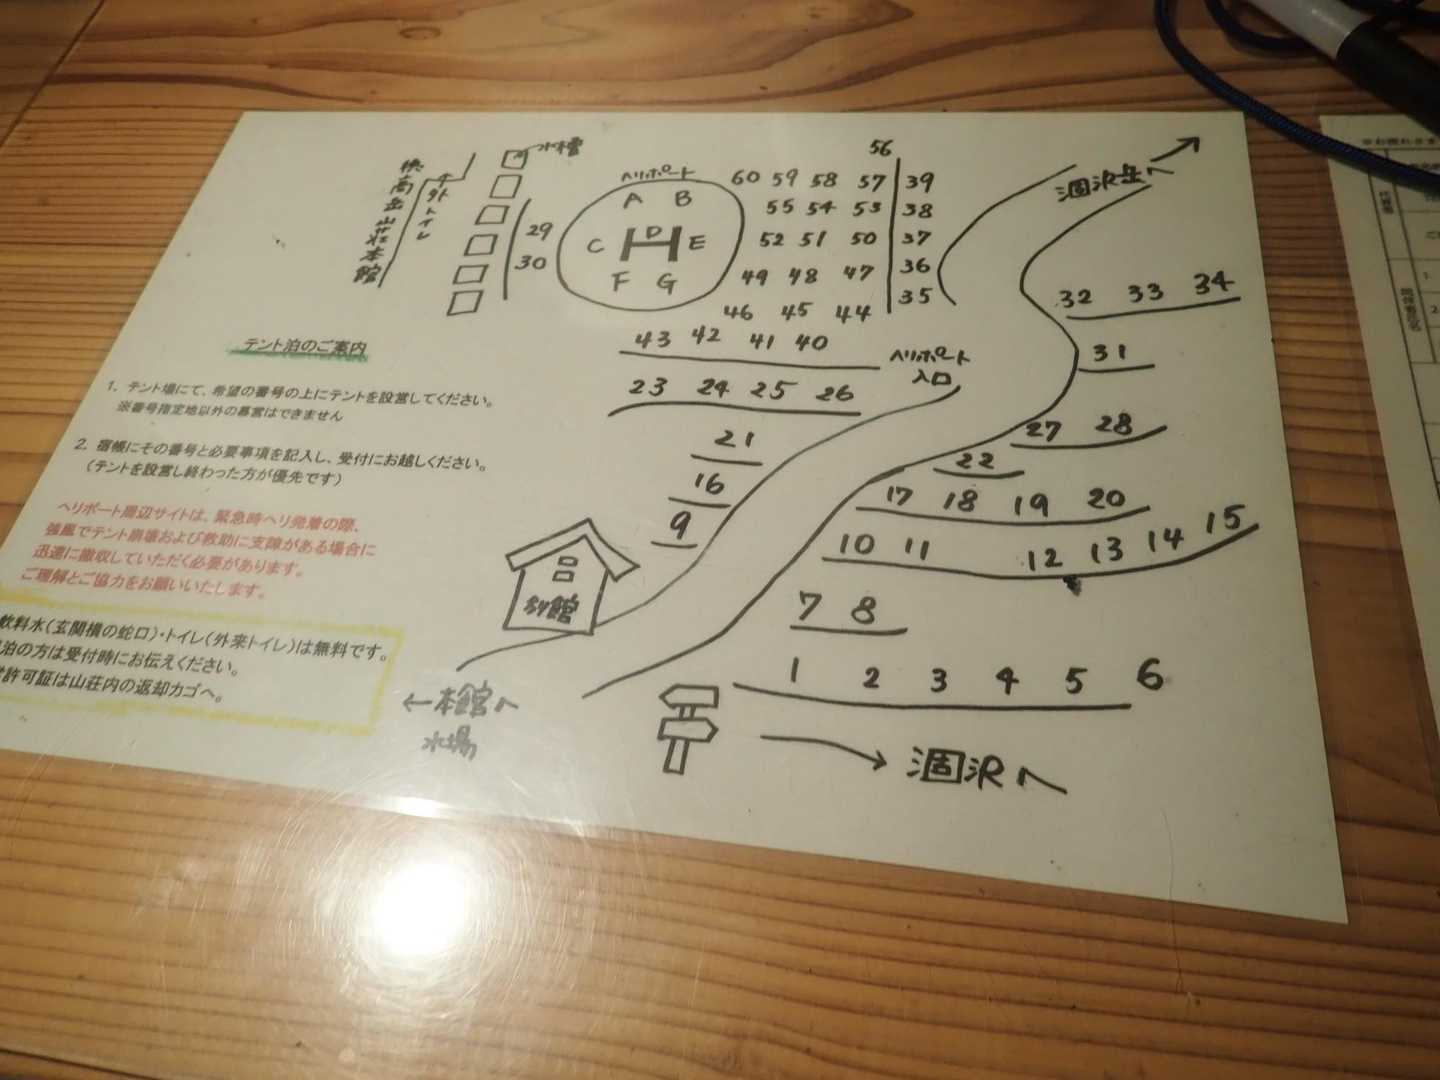 水槽
穂高岳山荘本館
外トイレ
ヘリポート
A B
C D E
H
F G
29
30
56
60 59 58 57 39
55 54 53 38
52 51 50 37
49 48 47 36
46 45 44 35
43 42 41 40
23 24 25 26
21
16
9
ヘリポート
入口
涸沢岳へ
32 33 34
31
27 28
22
17 18 19 20
10 11 12 13 14 15
7 8
1 2 3 4 5 6
別館
←本館へ
水場
涸沢へ
テント泊のご案内
1. テント場にて、希望の番号の上にテントを設営してください。
※番号指定地以外の幕営はできません
2. 宿帳にその番号と必要事項を記入し、受付にお越しください。
(テントを設営し終わった方が優先です)
ヘリポート周辺サイトは、緊急時ヘリ発着の際、
強風でテント崩壊および救助に支障がある場合に
迅速に撤収していただく必要があります。
ご理解とご協力をお願いいたします。
飲料水(玄関横の蛇口)・トイレ(外来トイレ)は無料です。
泊の方は受付時にお伝えください。
許可証は山荘内の返却カゴへ。